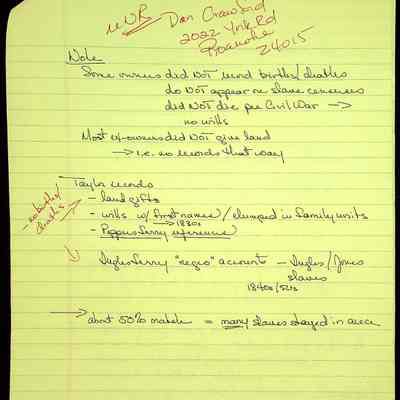 NB Dan Crawford
2022 York Rd
Roanoke
24015
Note
Some owners did NOT send births/deaths
do NOT appear on slave censuses
did NOT die pre Civil War →
no wills
Most ex-owners did NOT give land
→ i.e. no records that way
Taylor records
- no births/
deaths
- land gifts
- wills w/ first names / clumped in family units
→ 1830s
- Peppers Ferry reference
Ingles Ferry "negro" account - Ingles / Jones
slaves
1840s/50s
→ about 50% match = many slaves stayed in area